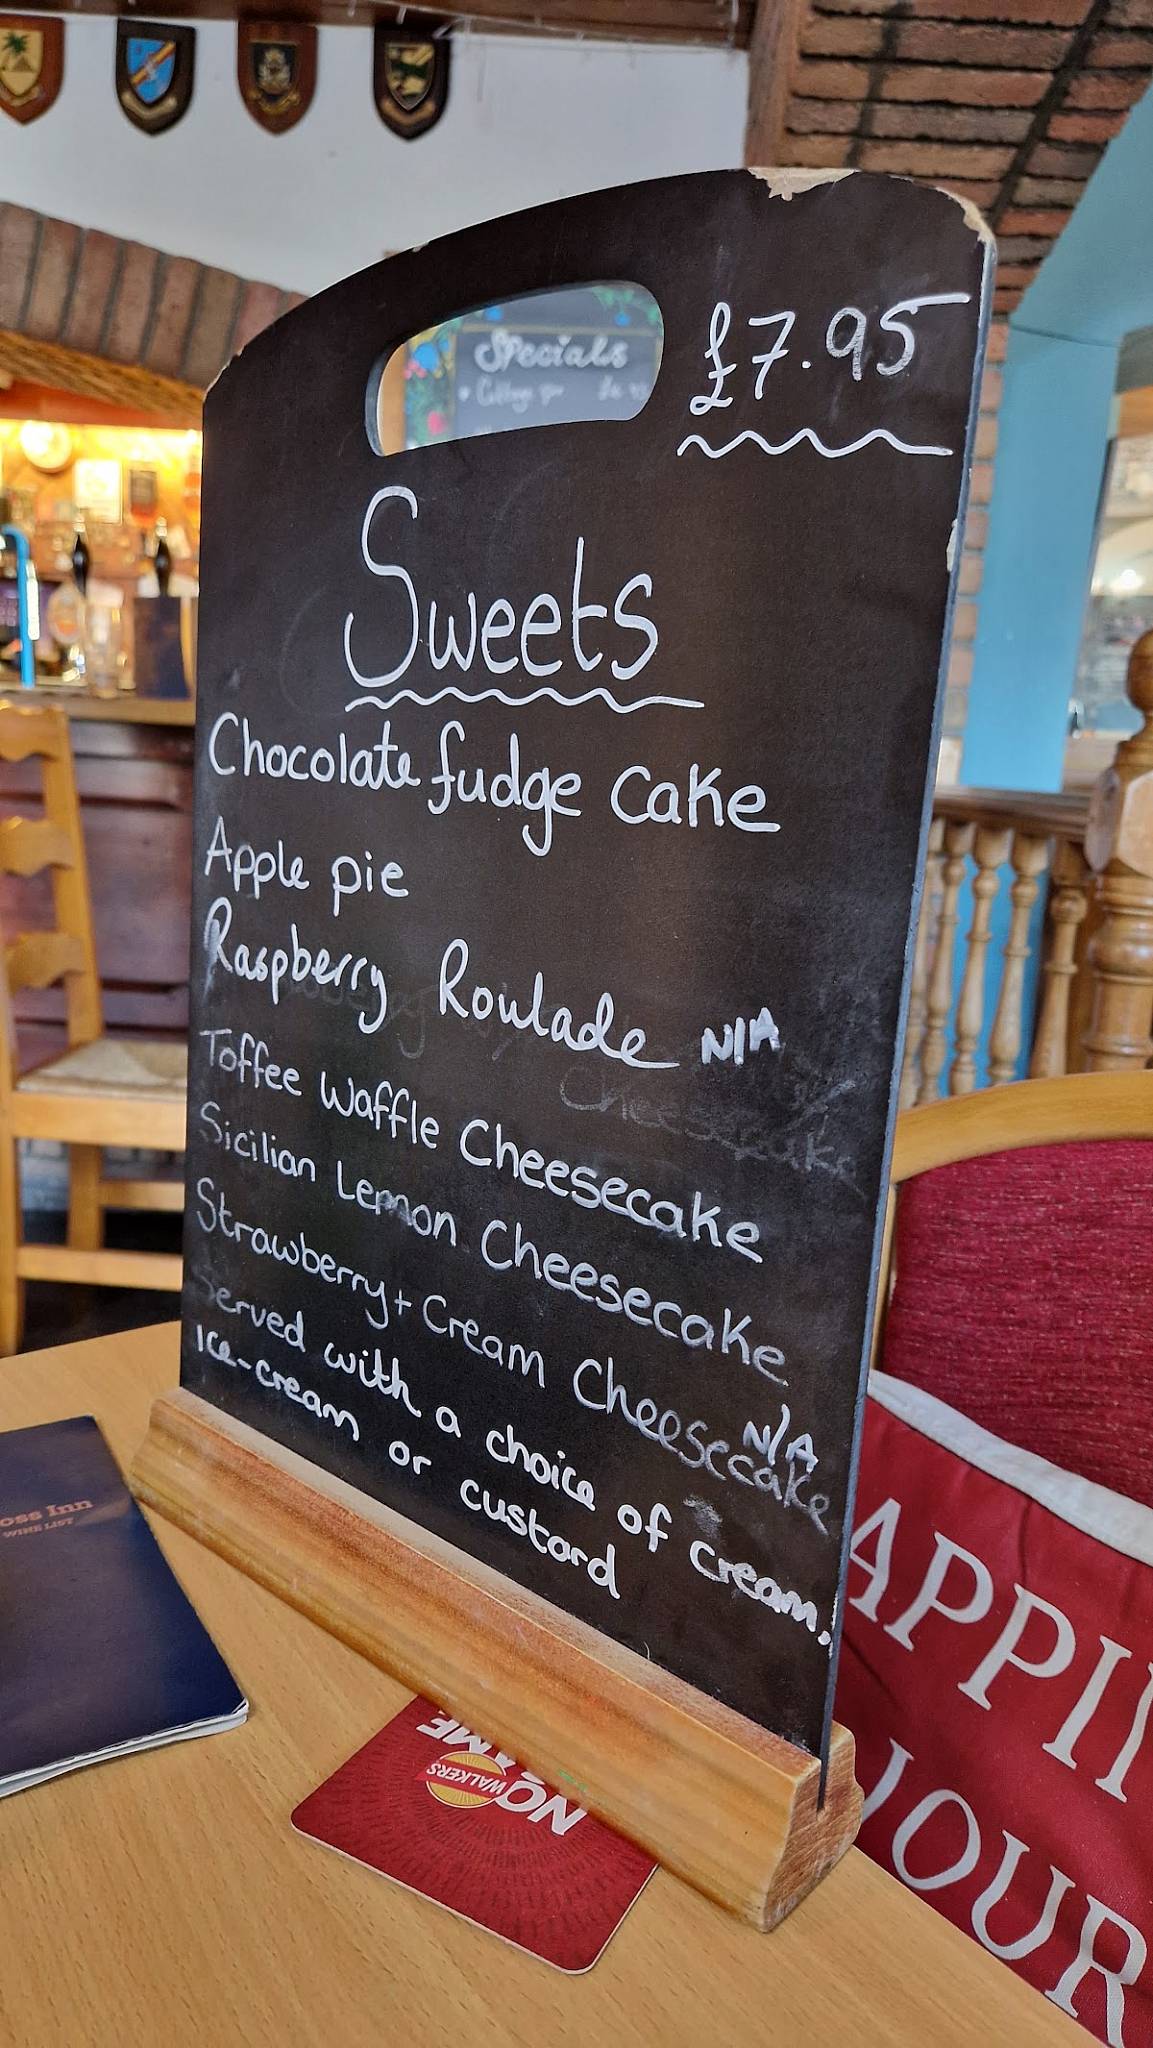 Specials
£7.95
Sweets
Chocolate fudge Cake
Apple pie
Raspberry Roulade N/A
Toffee Waffle Cheesecake
Sicilian Lemon Cheesecake
Strawberry + Cream Cheesecake N/A
Served with a choice of cream,
ice-cream or custard
oss Inn
WINE LIST
WALKERS
NO
GAME
APPI
OUR